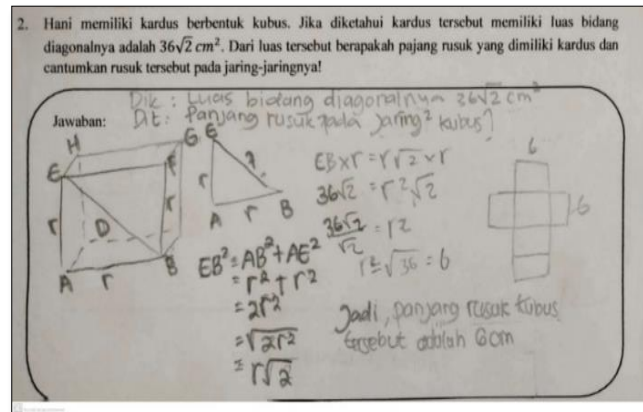 2. Hani memiliki kardus berbentuk kubus. Jika diketahui kardus tersebut memiliki luas bidang
diagonalnya adalah 36√2 cm². Dari luas tersebut berapakah pajang rusuk yang dimiliki kardus dan
cantumkan rusuk tersebut pada jaring-jaringnya!
Dik : Luas bidang diagonalnya 36√2 cm²
Jawaban:
Dit : Panjang rusuk pada jaring² kubus?
H
G
E
F
r
r
D
A
r
B
E
?
r
A
r
B
EB² = AB² + AE²
= r² + r²
= 2r²
= √2r²
= r√2
EB x r = r√2 x r
36√2 = r²√2
36√2/√2 = r²
r = √36 = 6
6
6
Jadi, panjang rusuk kubus
tersebut adalah 6cm